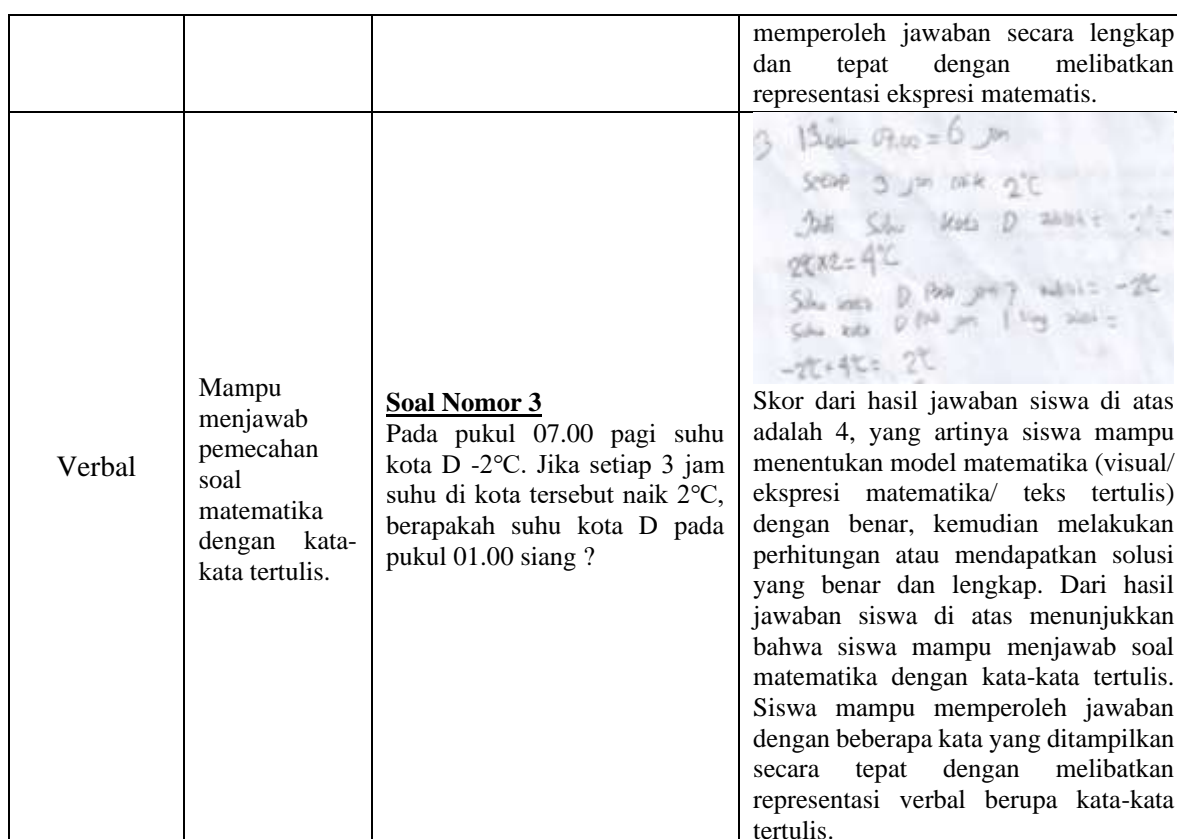 memperoleh jawaban secara lengkap
dan tepat dengan melibatkan
representasi ekspresi matematis.
Verbal
Mampu
menjawab
pemecahan
soal
matematika
dengan kata-
kata tertulis.
Soal Nomor 3
Pada pukul 07.00 pagi suhu
kota D -2°C. Jika setiap 3 jam
suhu di kota tersebut naik 2°C,
berapakah suhu kota D pada
pukul 01.00 siang ?
3 13.00 - 07.00 = 6 jam
Setiap 3 jam naik 2°C
Jadi Suhu kota D
2°C x 2 = 4°C
Suhu kota D Pada jam 7 = -2°C
Suhu kota D Pada jam 1 siang =
-2°C + 4°C = 2°C
Skor dari hasil jawaban siswa di atas
adalah 4, yang artinya siswa mampu
menentukan model matematika (visual/
ekspresi matematika/ teks tertulis)
dengan benar, kemudian melakukan
perhitungan atau mendapatkan solusi
yang benar dan lengkap. Dari hasil
jawaban siswa di atas menunjukkan
bahwa siswa mampu menjawab soal
matematika dengan kata-kata tertulis.
Siswa mampu memperoleh jawaban
dengan beberapa kata yang ditampilkan
secara tepat dengan melibatkan
representasi verbal berupa kata-kata
tertulis.